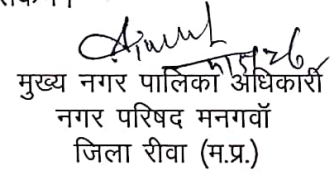 मुख्य नगर पालिका अधिकारी
नगर परिषद मनगवॉ
जिला रीवा (म.प्र.)